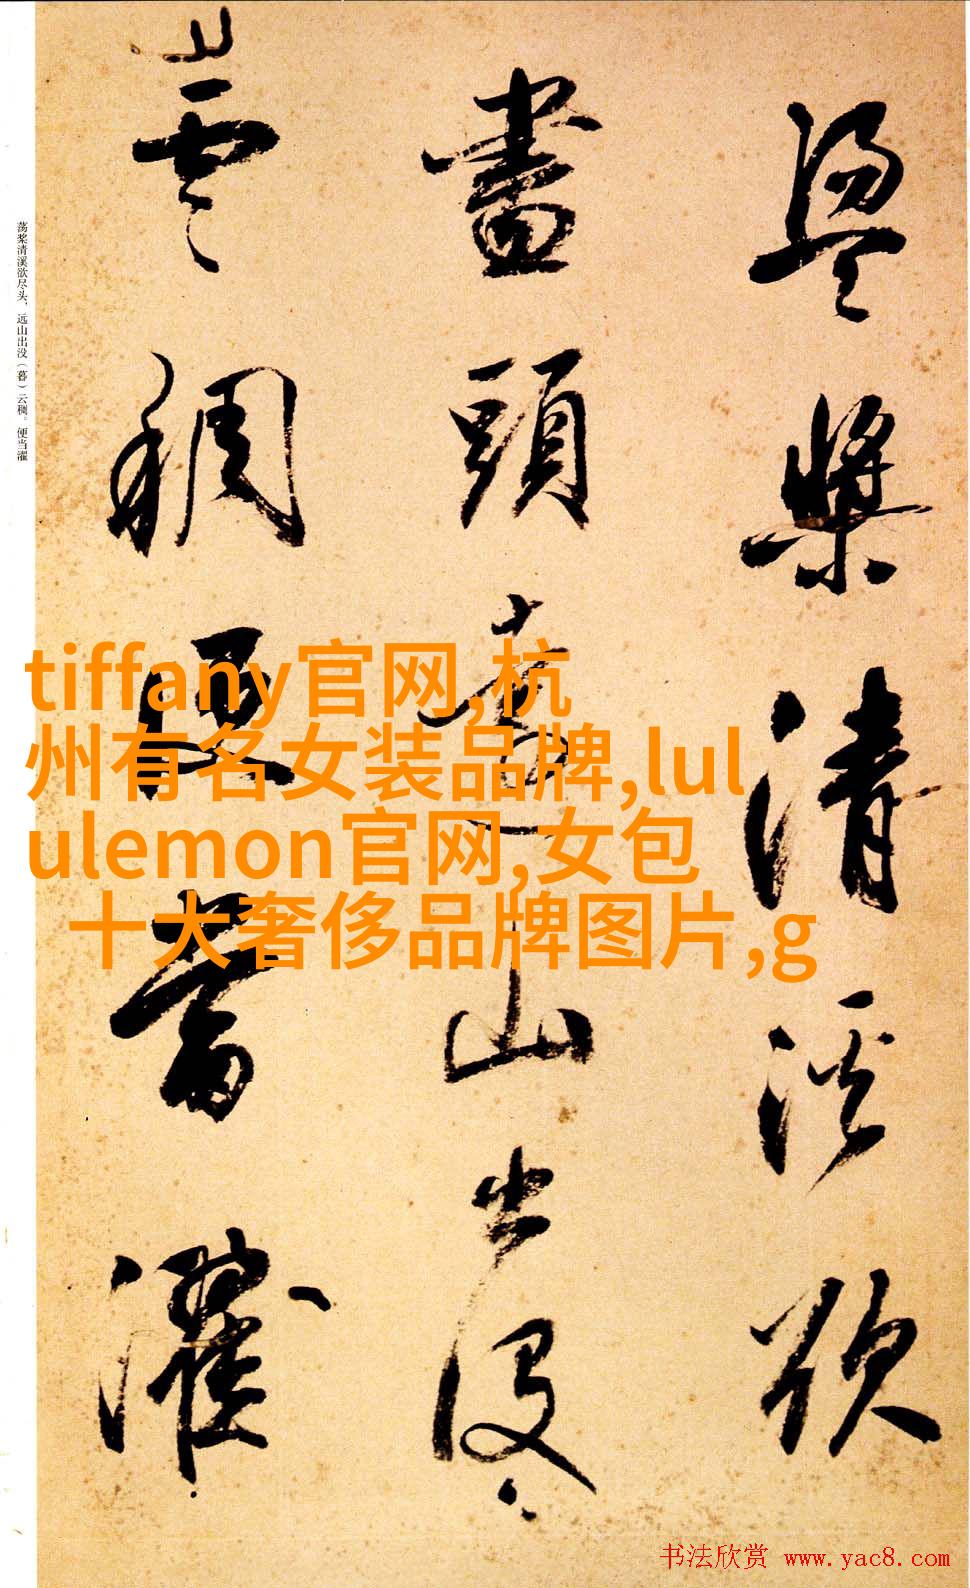 盪槳清溪欲
盡頭遠山出沒
雲稠便當濯
荡桨清溪欲尽头，远山出没（暮）云稠。便当濯
tiffany官网,杭
州有名女装品牌,lul
ulemon官网,女包
十大奢侈品牌图片,g
书法欣赏 www.yac8.com